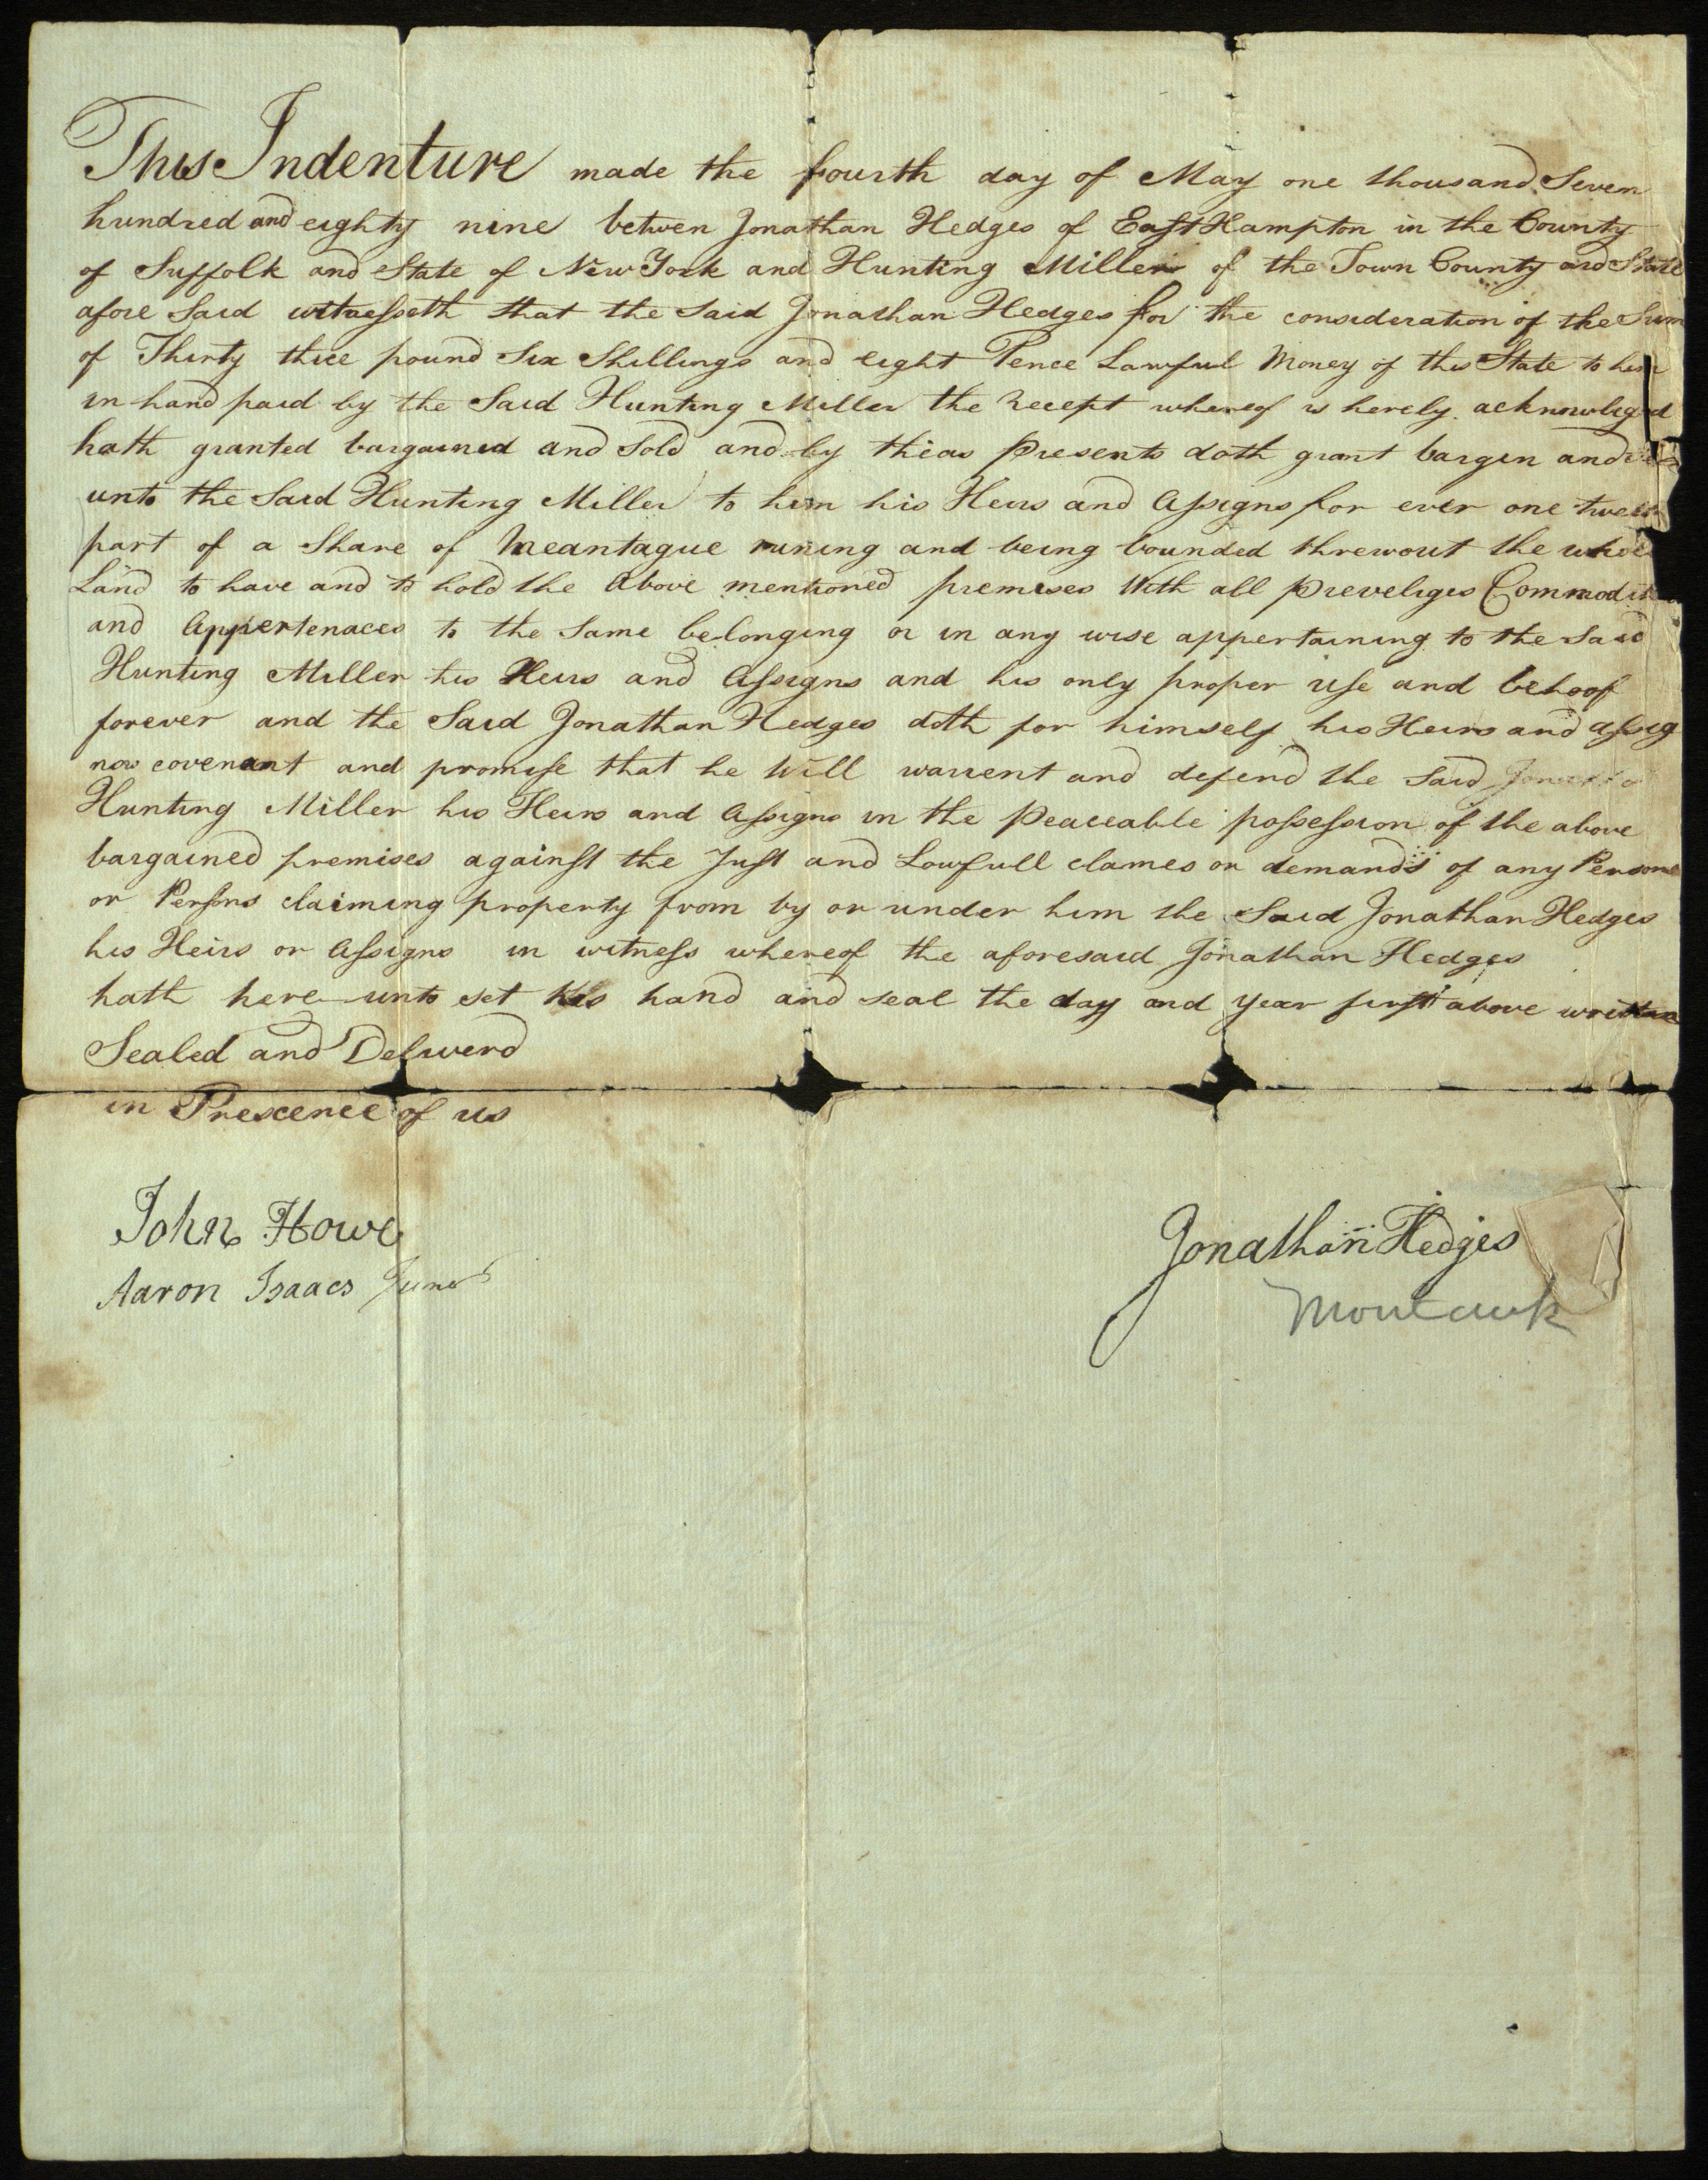 This Indenture made the fourth day of May one thousand Seven
hundred and eighty nine betwen Jonathan Hedges of East Hampton in the County
of Suffolk and State of New York and Hunting Miller of the Town County and State
afore Said witnesseth that the Said Jonathan Hedges for the consideration of the Sum
of Thirty three pound Six Shillings and eight Pence Lawful Money of this State to him
in hand paid by the Said Hunting Miller the Recept whereof is hereby acknowliged
hath granted bargained and Sold and by theas Presents doth grant bargin and
unto the Said Hunting Miller to him his Heirs and Assigns for ever one
part of a Share of Meantague runing and being bounded threwout the whole
Land to have and to hold the Above mentioned premises With all Preveliges
and Appertenaces to the Same belonging or in any wise appertaining to the Said
Hunting Miller his Heirs and Assigns and his only proper use and behoof
forever and the Said Jonathan Hedges doth for himself his Heirs and assig
nes covenant and promise that he Will warrent and defend the Said
Hunting Miller his Heirs and Assigns in the Peaceable possession of the above
bargained premises against the Just and Lawfull clames or demands of any Persone
or Persons claiming property from by or under him the Said Jonathan Hedges
his Heirs or Assigns in witness whereof the aforesaid Jonathan Hedges
hath here unto set his hand and seal the day and year first above written
Sealed and Deliverd
in Prescence of us
John Howe
Jonathan Hedges
Aaron Isaacs Junr
Montauk